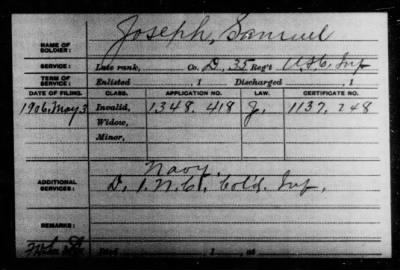 Joseph, Samuel
NAME OF SOLDIER:
SERVICE: Late rank, Co. D, 35 Reg't U.S.C. Inf
TERM OF SERVICE: Enlisted , 1 Discharged , 1
DATE OF FILING. CLASS. APPLICATION NO. LAW. CERTIFICATE NO.
1906. May 3 Invalid, 1348.418 J. 1137.248
Widow,
Minor,
Navy.
ADDITIONAL SERVICES: D. 1. N.C. Cold. Inf.
REMARKS:
Died , 1 , at